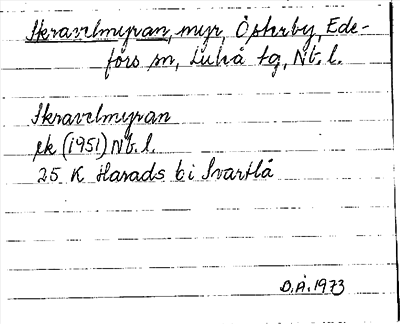 Skravelmyran, myr, Österby, Ede-
fors sn, Luleå tg, Nb. l.
Skravelmyran
ek (1951) Nb. l.
25 K Harads bi Svartlå
D.Å. 1973